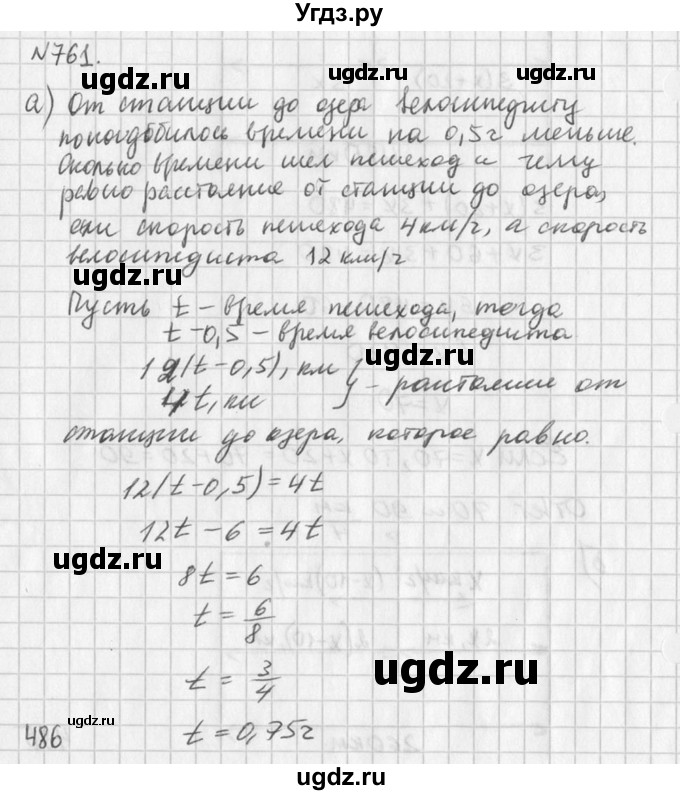 Угдз.ру
№761.
а) От станции до озера велосипедисту
понадобилось времени на 0,5ч меньше.
Сколько времени шел пешеход и чему
равно расстояние от станции до озера,
если скорость пешехода 4км/ч, а скорость
велосипедиста 12км/ч
Пусть t – время пешехода, тогда
t-0,5 – время велосипедиста
12(t-0,5), км
4t, км } – расстояние от
станции до озера, которое равно.
12(t-0,5)=4t
12t-6=4t
8t=6
t=6/8
t=3/4
t=0,75ч
486
ugdz.ru
ugdz.ru
ugdz.ru
ugdz.ru
ugdz.ru
ugdz.ru
ugdz.ru
ugdz.ru
ugdz.ru
ugdz.ru